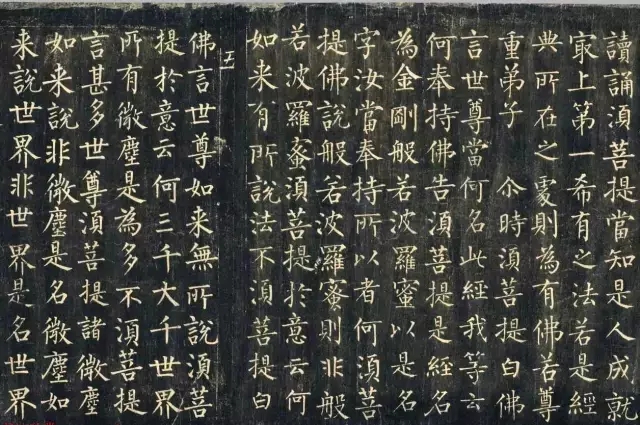 讀誦須菩提當知是人成就
冣上第一希有之法若是經
典所在之處則為有佛若尊
重弟子 尒時須菩提白佛
言世尊當何名此經我等云
何奉持佛告須菩提是經名
為金剛般若波羅蜜以是名
字汝當奉持所以者何須菩
提佛說般若波羅蜜則非般
若波羅蜜須菩提於意云何
如来有所說法不須菩提白
五
佛言世尊如来無所說須菩
提於意云何三千大千世界
所有微塵是為多不須菩提
言甚多世尊須菩提諸微塵
如来說非微塵是名微塵如
来說世界非世界是名世界